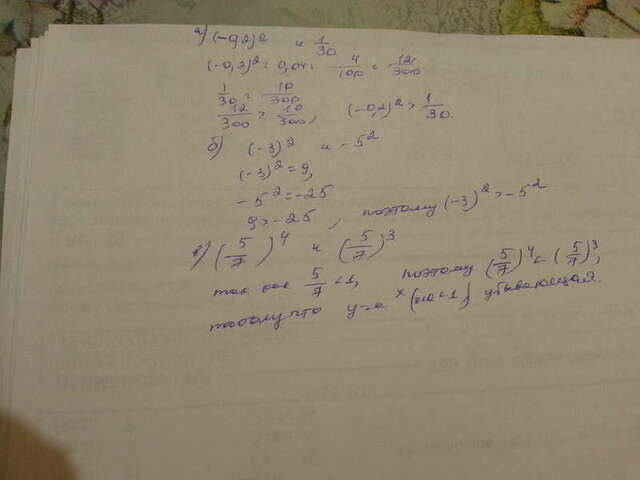 а) (-0,2)² и 1/30
(-0,2)² = 0,04 = 4/100 = 12/300
1/30 = 10/300
12/300 > 10/300, (-0,2)² > 1/30.
б) (-3)² и -5²
(-3)² = 9,
-5² = -25
9 > -25, поэтому (-3)² > -5²
в) (5/7)⁴ и (5/7)³
так как 5/7 < 1, поэтому (5/7)⁴ < (5/7)³,
потому что y = aˣ (0<a<1) убывающая.